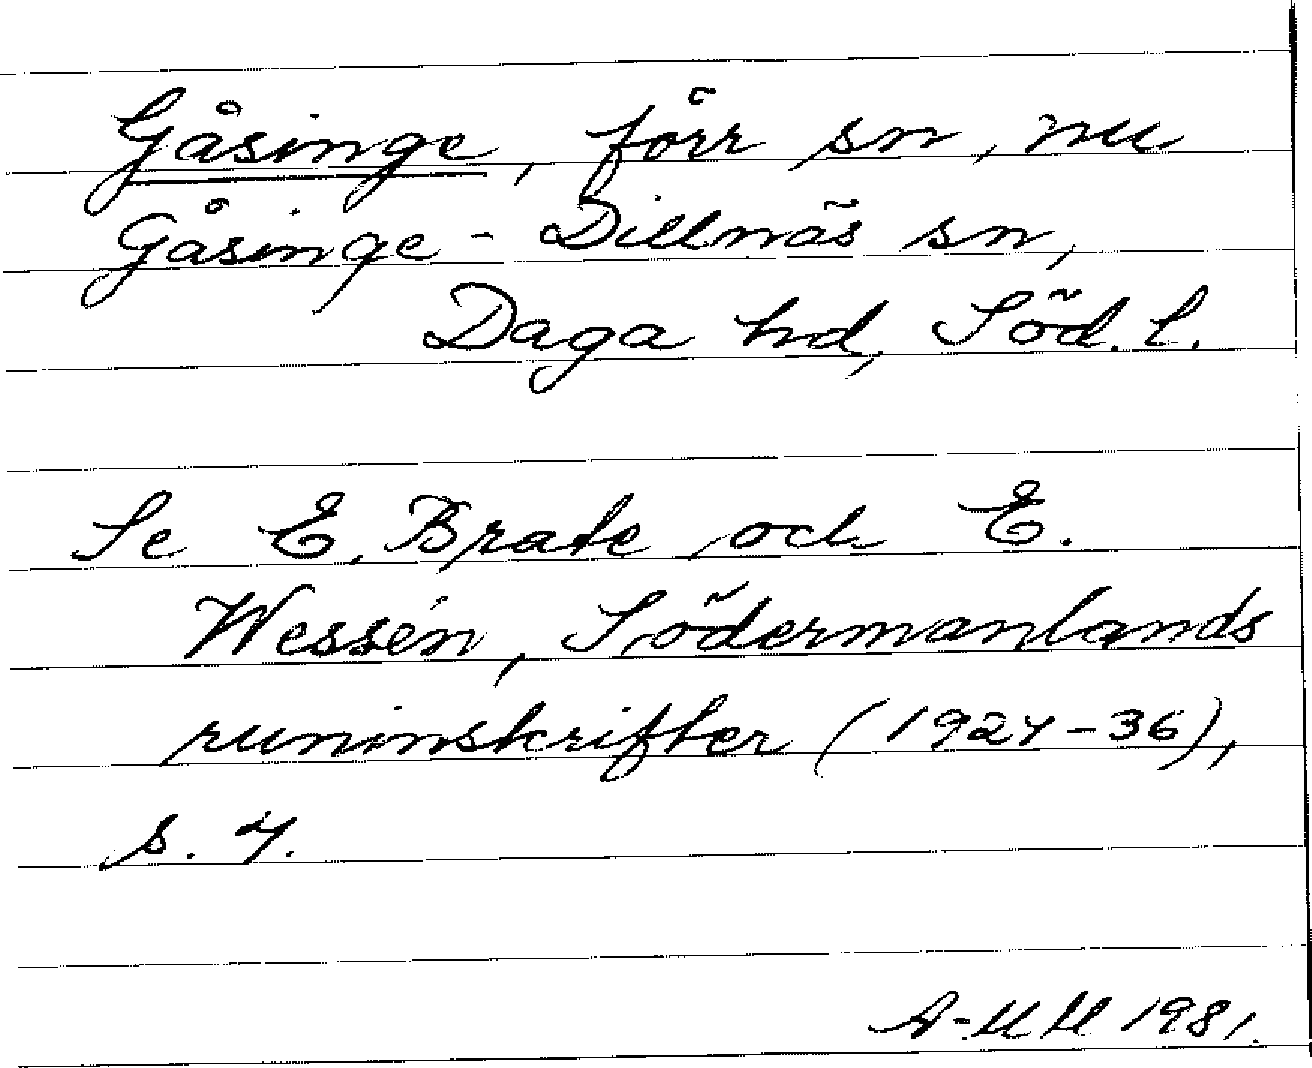 Gåsinge, förr sn, nu
Gåsinge - Dillnäs sn,
Daga hd, Söd. l.
Se E. Brate och E.
Wessén, Södermanlands
runinskrifter (1924-36),
s. 4.
A-MM 1981.